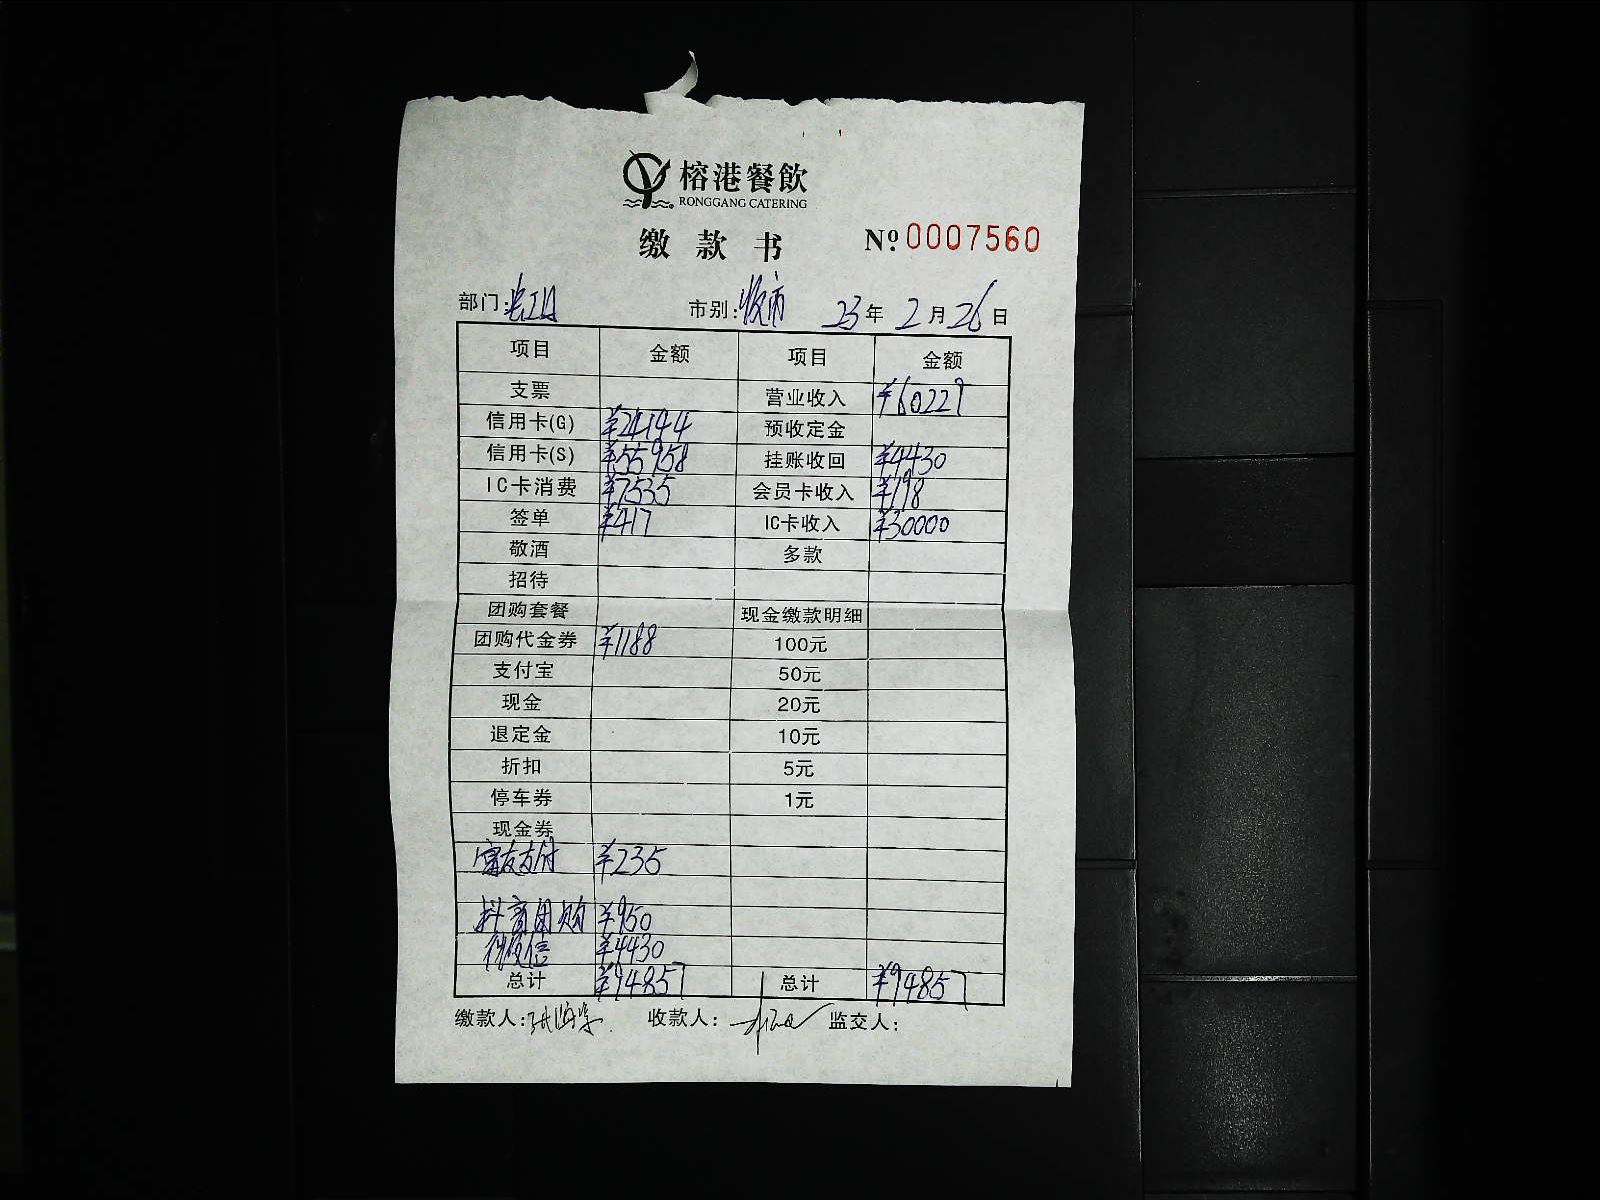 榕港餐飲
RONGGANG CATERING
缴款书 Nº 0007560
部门: 市别:收市 23年2月26日
项目 金额 项目 金额
支票 营业收入 ¥60229
信用卡(G) ¥24144 预收定金
信用卡(S) ¥55958 挂账收回 ¥4430
IC卡消费 ¥7535 会员卡收入 ¥198
签单 ¥417 IC卡收入 ¥30000
敬酒 多款
招待
团购套餐 现金缴款明细
团购代金券 ¥1188 100元
支付宝 50元
现金 20元
退定金 10元
折扣 5元
停车券 1元
现金券
富友支付 ¥235
抖音团购 ¥950
微信 ¥4430
总计 ¥94857 总计 ¥94857
缴款人: 收款人: 监交人: